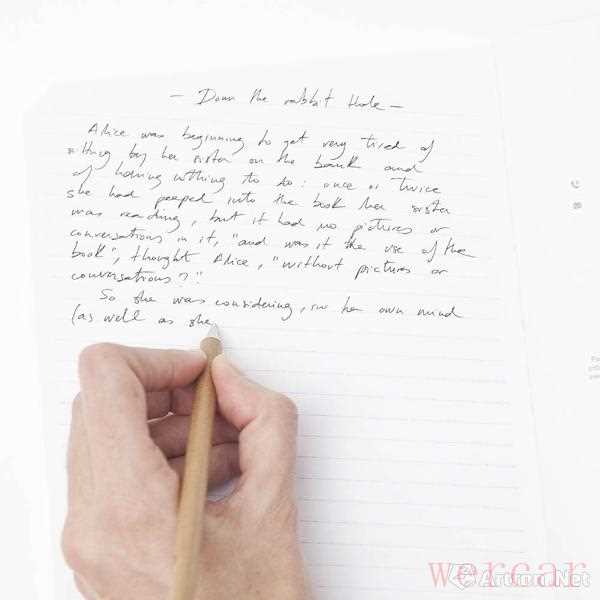 — Down the rabbit Hole —
Alice was beginning to get very tired of
sitting by her sister on the bank and
of having nothing to do: once or twice
she had peeped into the book her sister
was reading, but it had no pictures or
conversations in it, "and was it the use of the
book", thought Alice, "without pictures or
conversations?".
So she was considering, in her own mind
(as well as she
wercar
Artron.Net